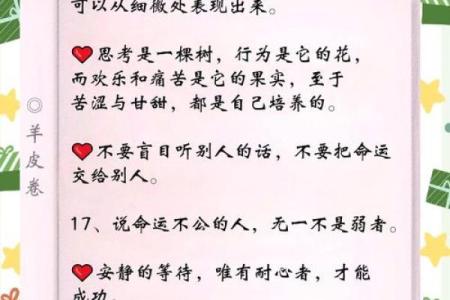 可以从细微处表现出来。
❤思考是一棵树，行为是它的花，
而欢乐和痛苦是它的果实，至于
苦涩与甘甜，都是自己培养的。
❤不要盲目听别人的话，不要把命运
交给别人。
17、说命运不公的人，无一不是弱者。
❤安静的等待，唯有耐心者，才能
成功。
◎羊皮卷